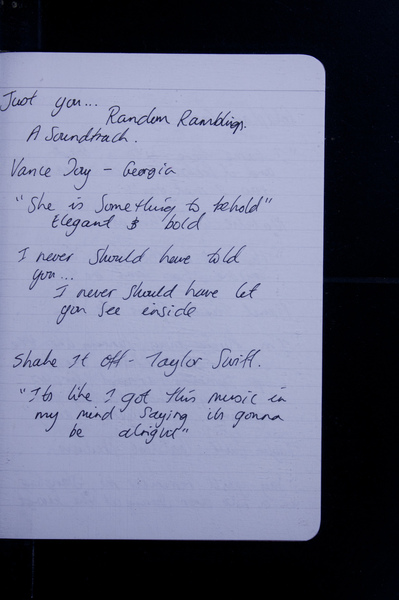 Just you...
Random Ramblings.
A Soundtrack.
Vance Joy - Georgia
"She is something to behold"
Elegant & bold
I never should have told
you...
I never should have let
you see inside
Shake It Off - Taylor Swift.
"Its like I got this music in
my mind saying its gonna
be alright"